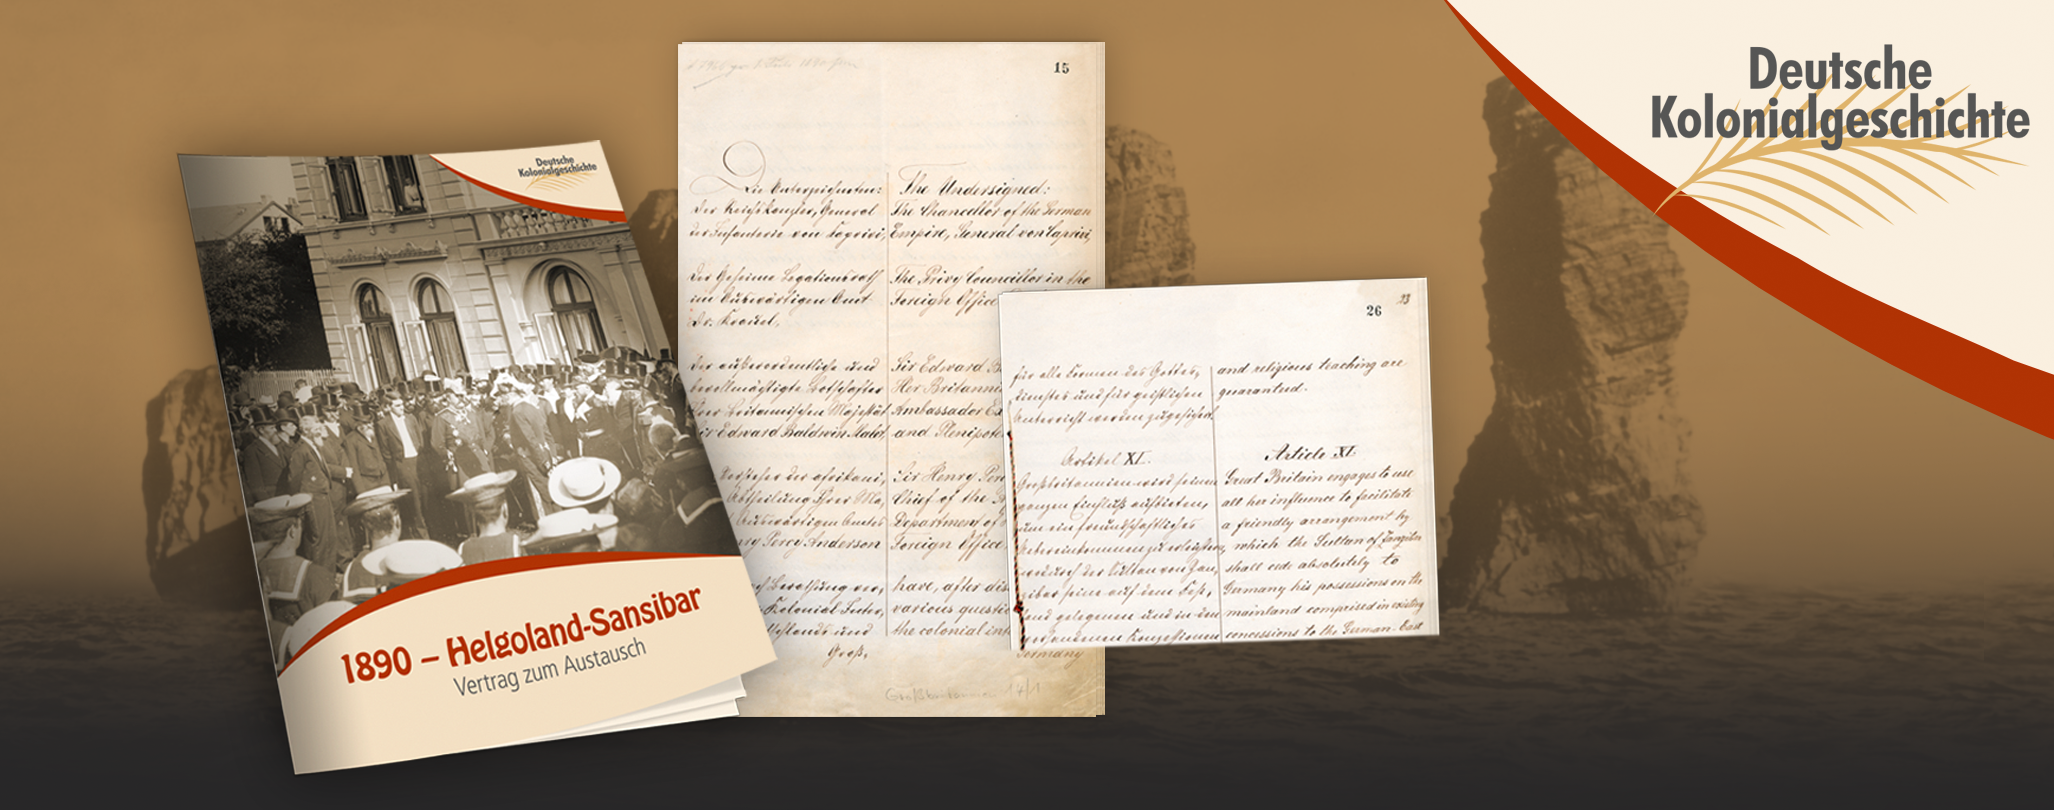 Deutsche
Kolonialgeschichte
Deutsche
Kolonialgeschichte
1890 – Helgoland-Sansibar
Vertrag zum Austausch
15
Die Unterzeichneten:
Der Reichskanzler, General
der Infanterie von Caprivi,
Der Geheime Legationsrath
im Auswärtigen Amt
Dr. Krauel,
Der außerordentliche und
bevollmächtigte Botschafter
Ihrer Britannischen Majestät
Sir Edward Baldwin Malet
Vorsteher der afrikani,
Abtheilung Ihrer Ma,
Auswärtigen Amtes
nry Percy Anderson
ch Berathung ver,
Kolonial Inter,
tschlands und
Groß,
The Undersigned:
The Chancellor of the German
Empire, General von Caprivi,
The Privy Councillor in the
Foreign Office
Sir Edward B
Her Britannic
Ambassador Ex
and Plenipote
Sir Henry Perc
Chief of the
Department of
Foreign Office
have, after dis
various questio
the colonial int
Germany
26
für alle Formen des Gottes,
dienstes und für geistlichen
Unterricht werden zugesichert.
Artikel XI.
Großbritannien wird seinen
ganzen Einfluß aufbieten,
um ein freundschaftliches
Uebereinkommen zu erleichtern,
wodurch der Sultan von San,
sibar seine auf dem Fest,
land gelegenen und in den
vorhandenen Konzessionen
and religious teaching are
guaranteed.
Article XI.
Great Britain engages to use
all her influence to facilitate
a friendly arrangement by
which the Sultan of Zanzibar
shall cede absolutely to
Germany his possessions on the
mainland comprised in existing
concessions to the German East